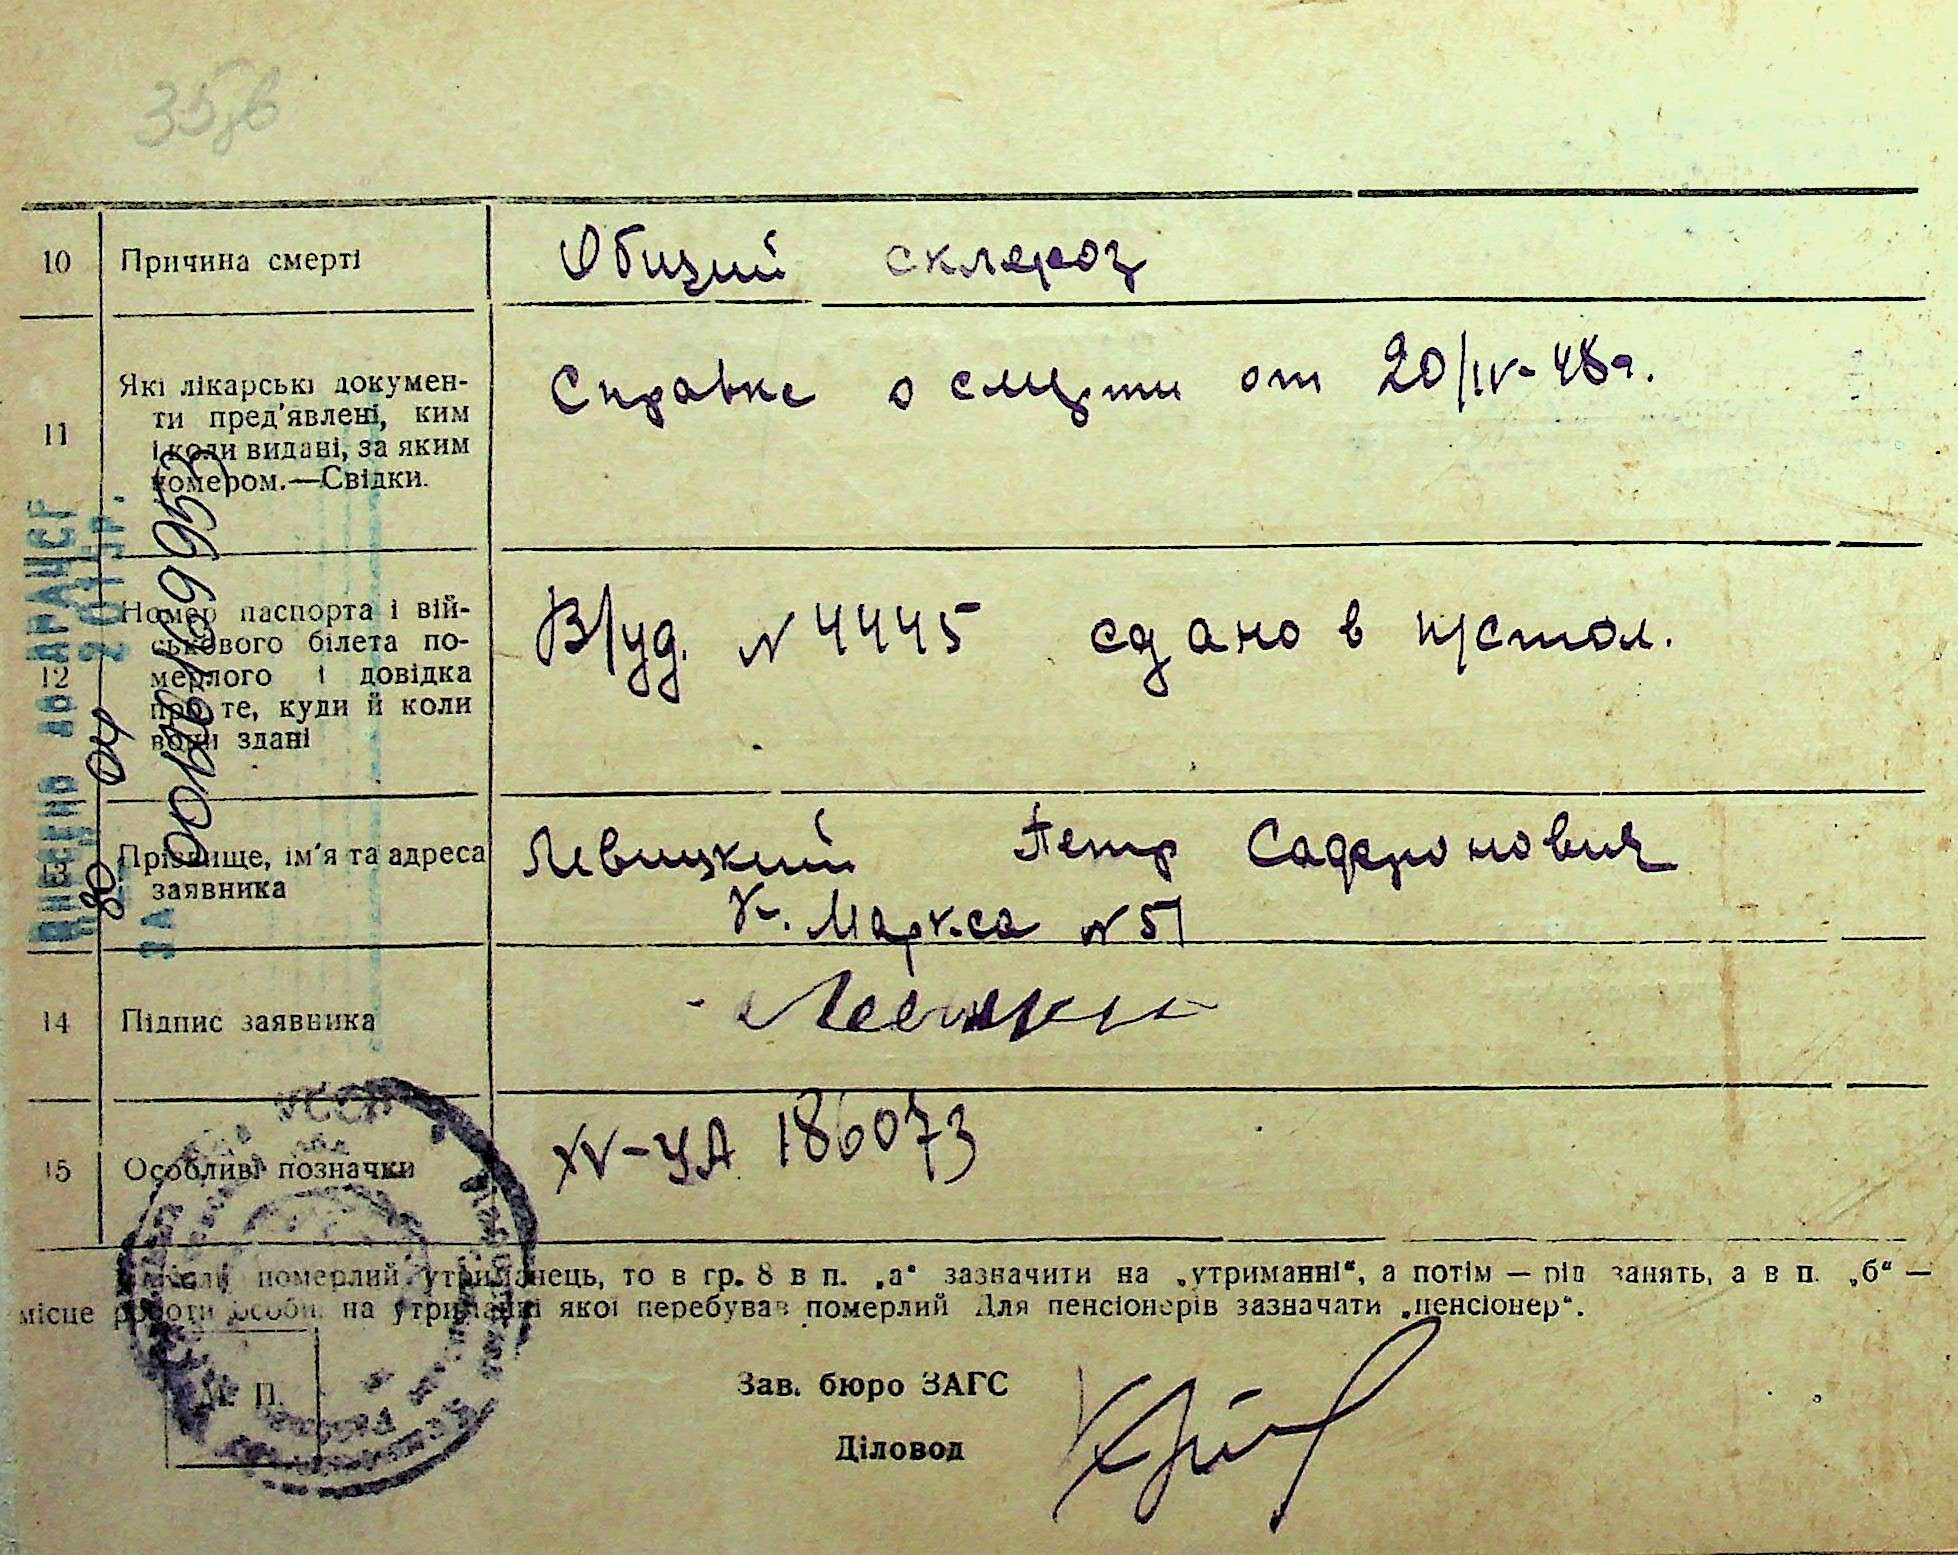 10 Причина смерті Общий склероз
11 Які лікарські докумен-
ти пред'явлені, ким
і коли видані, за яким
номером.—Свідки.
Справка о смерти от 20/IV-48г.
12 Номер паспорта і вій-
ськового білета по-
мерлого і довідка
про те, куди й коли
вони здані
В/уд. N 4445 сдано в п/стол.
13 Прізвище, ім'я та адреса
заявника
Левицкий Петр Садеронович
К. Маркса N 51
14 Підпис заявника
15 Особливі позначки XV-УА 186073
Коли померлий утриманець, то в гр. 8 в п. „а“ зазначити на „утриманні“, а потім — рід занять, а в п. „б“ —
місце роботи особи, на утриманні якої перебував померлий Для пенсіонерів зазначати „пенсіонер“.
М. П.
Зав. бюро ЗАГС
Діловод
ВНЕСЕНО ДО ДРАЦСГ
201 р.
ЗА